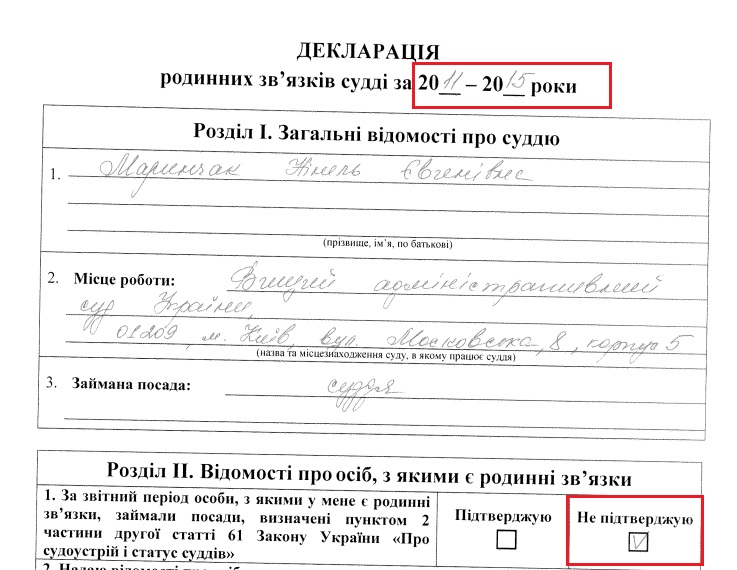 ДЕКЛАРАЦІЯ
родинних зв’язків судді за 2011 – 2015 роки
Розділ І. Загальні відомості про суддю
1. Маринчак Нінель Євгенівна
(прізвище, ім’я, по батькові)
2. Місце роботи: Вищий адміністративний
суд України,
01209, м. Київ, вул. Московська, 8, корпус 5
(назва та місцезнаходження суду, в якому працює суддя)
3. Займана посада: суддя
Розділ ІІ. Відомості про осіб, з якими є родинні зв’язки
1. За звітний період особи, з якими у мене є родинні
зв’язки, займали посади, визначені пунктом 2
частини другої статті 61 Закону України «Про
судоустрій і статус суддів»
Підтверджую
Не підтверджую